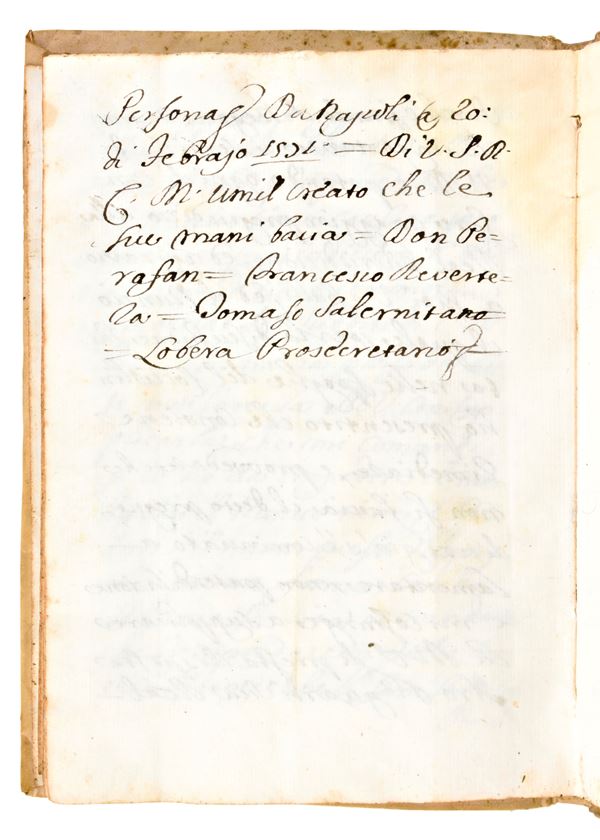 Persona Da Napoli a 20:
di Febrajo 1571. = Di V. S. R.
C. M. umil creato che le
sue mani bacia = Don Pe=
rafan = Francesco Reverte=
ra = Tomaso Salernitano
= Lobera Prosecretario